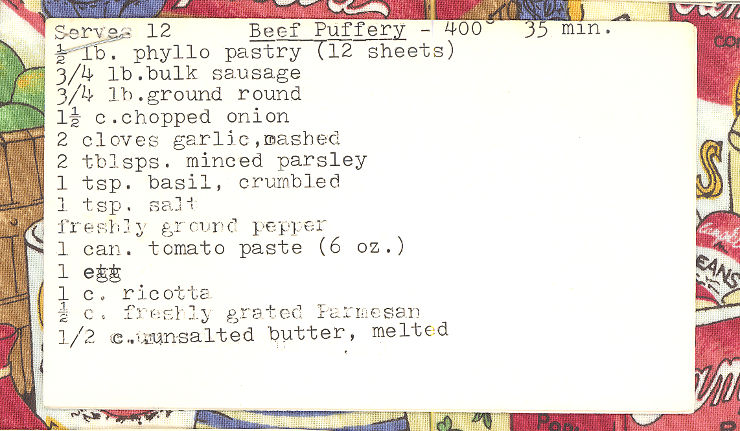 Serves 12 Beef Puffery - 400° 35 min.
½ lb. phyllo pastry (12 sheets)
3/4 lb.bulk sausage
3/4 lb.ground round
1½ c.chopped onion
2 cloves garlic,mashed
2 tblsps. minced parsley
1 tsp. basil, crumbled
1 tsp. salt
freshly ground pepper
1 can. tomato paste (6 oz.)
1 egg
1 c. ricotta
½ c. freshly grated Parmesan
1/2 c.uunsalted butter, melted
EANS